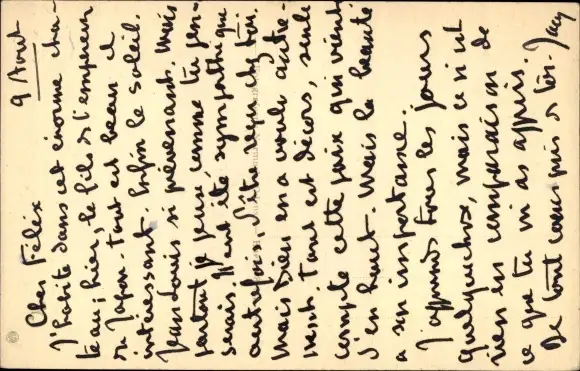 9 Août
Cher Félix
J'habite dans cet énorme cha-
teau; hier, le fils de l'empereur
du Japon. Tout est beau et
intéressant. Enfin le soleil.
Van Louis si prévenant. Mais
partout je pense, comme tu pen-
serais. Il eut été sympathique
autrefois, d'être reçu chez toi.
Mais Dieu en a voulu autre-
ment. Tout est décors, seule
compte cette paix qui vient
d'en haut. Mais la beauté
a son importance.
J'apprends tous les jours
quelque chose, mais ce n'est
rien en comparaison de
ce que tu m'as appris.
De tout cœur près de toi.